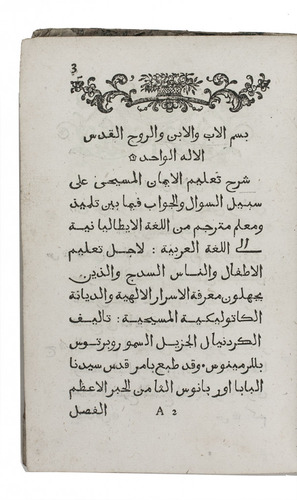 3
بسم الاب والابن والروح القدس
الاله الواحد
شرح تعليم الايمان المسيحى على
سبيل السوال والجواب فيما بين تلميذ
ومعلم مترجم من اللغة الايطاليانية
الى اللغة العربية : لاجل تعليم
الاطفال والناس السدج والذين
يجهلون معرفة الاسرار الالهية والديانة
الكاتوليكية المسيحية : تاليف
الكردنيال الجزيل السمو روبرتوس
بللرمينوس . وقد طبع بامر قدس سيدنا
البابا اوربانوس الثامن للحبر الاعظم
A 2 الفصل